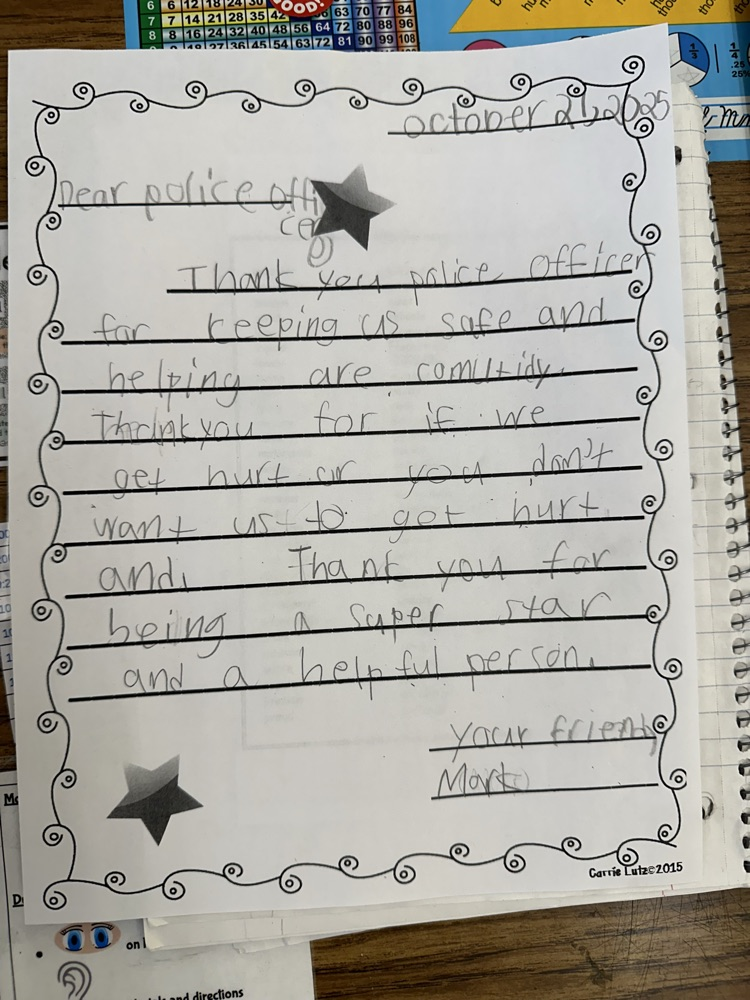 6 6 12 18 24 30
GOOD!
63 70 77 84
7 7 14 21 28 35 42
8 8 16 24 32 40 48 56 64 72 80 88 96
27 36 45 54 63 72 81 90 99 108
1/3
1/4
.25
25%
october 21, 2025
Dear police offi
cer
Thank you police officer
for keeping us safe and
helping are comutidy.
Thankyou for if we
get hurt or you don't
want us to got hurt
and. Thank you for
being a super star
and a helpful person.
your friend,
Mark
Carrie Lutz©2015
on
and directions